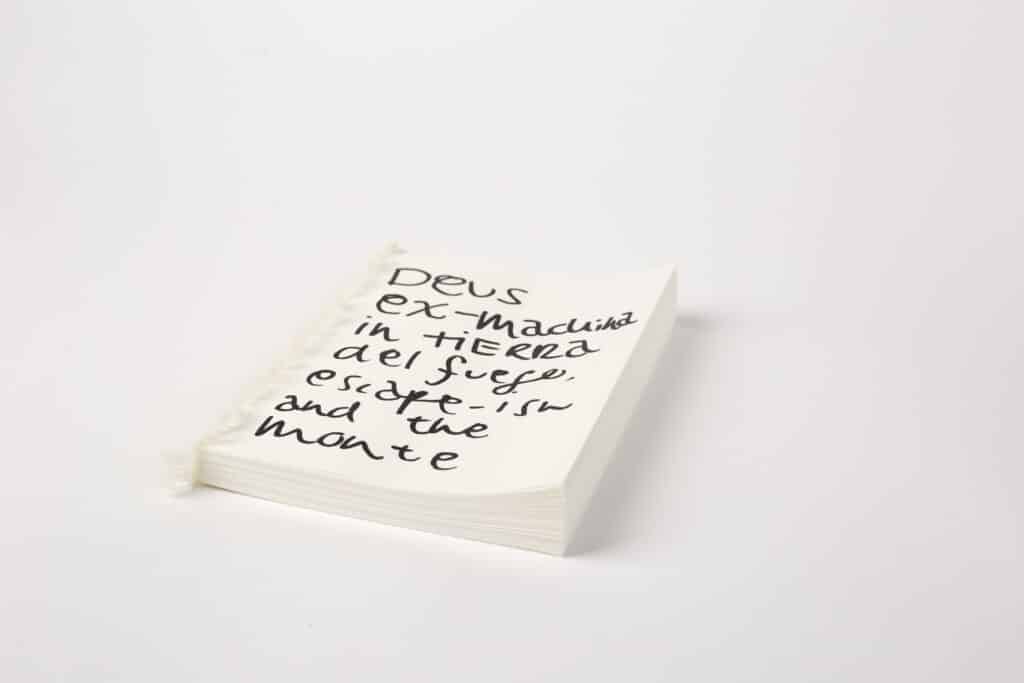 Deus
ex-machina
in tiERRa
del fuego,
escape-ism
and the
monte